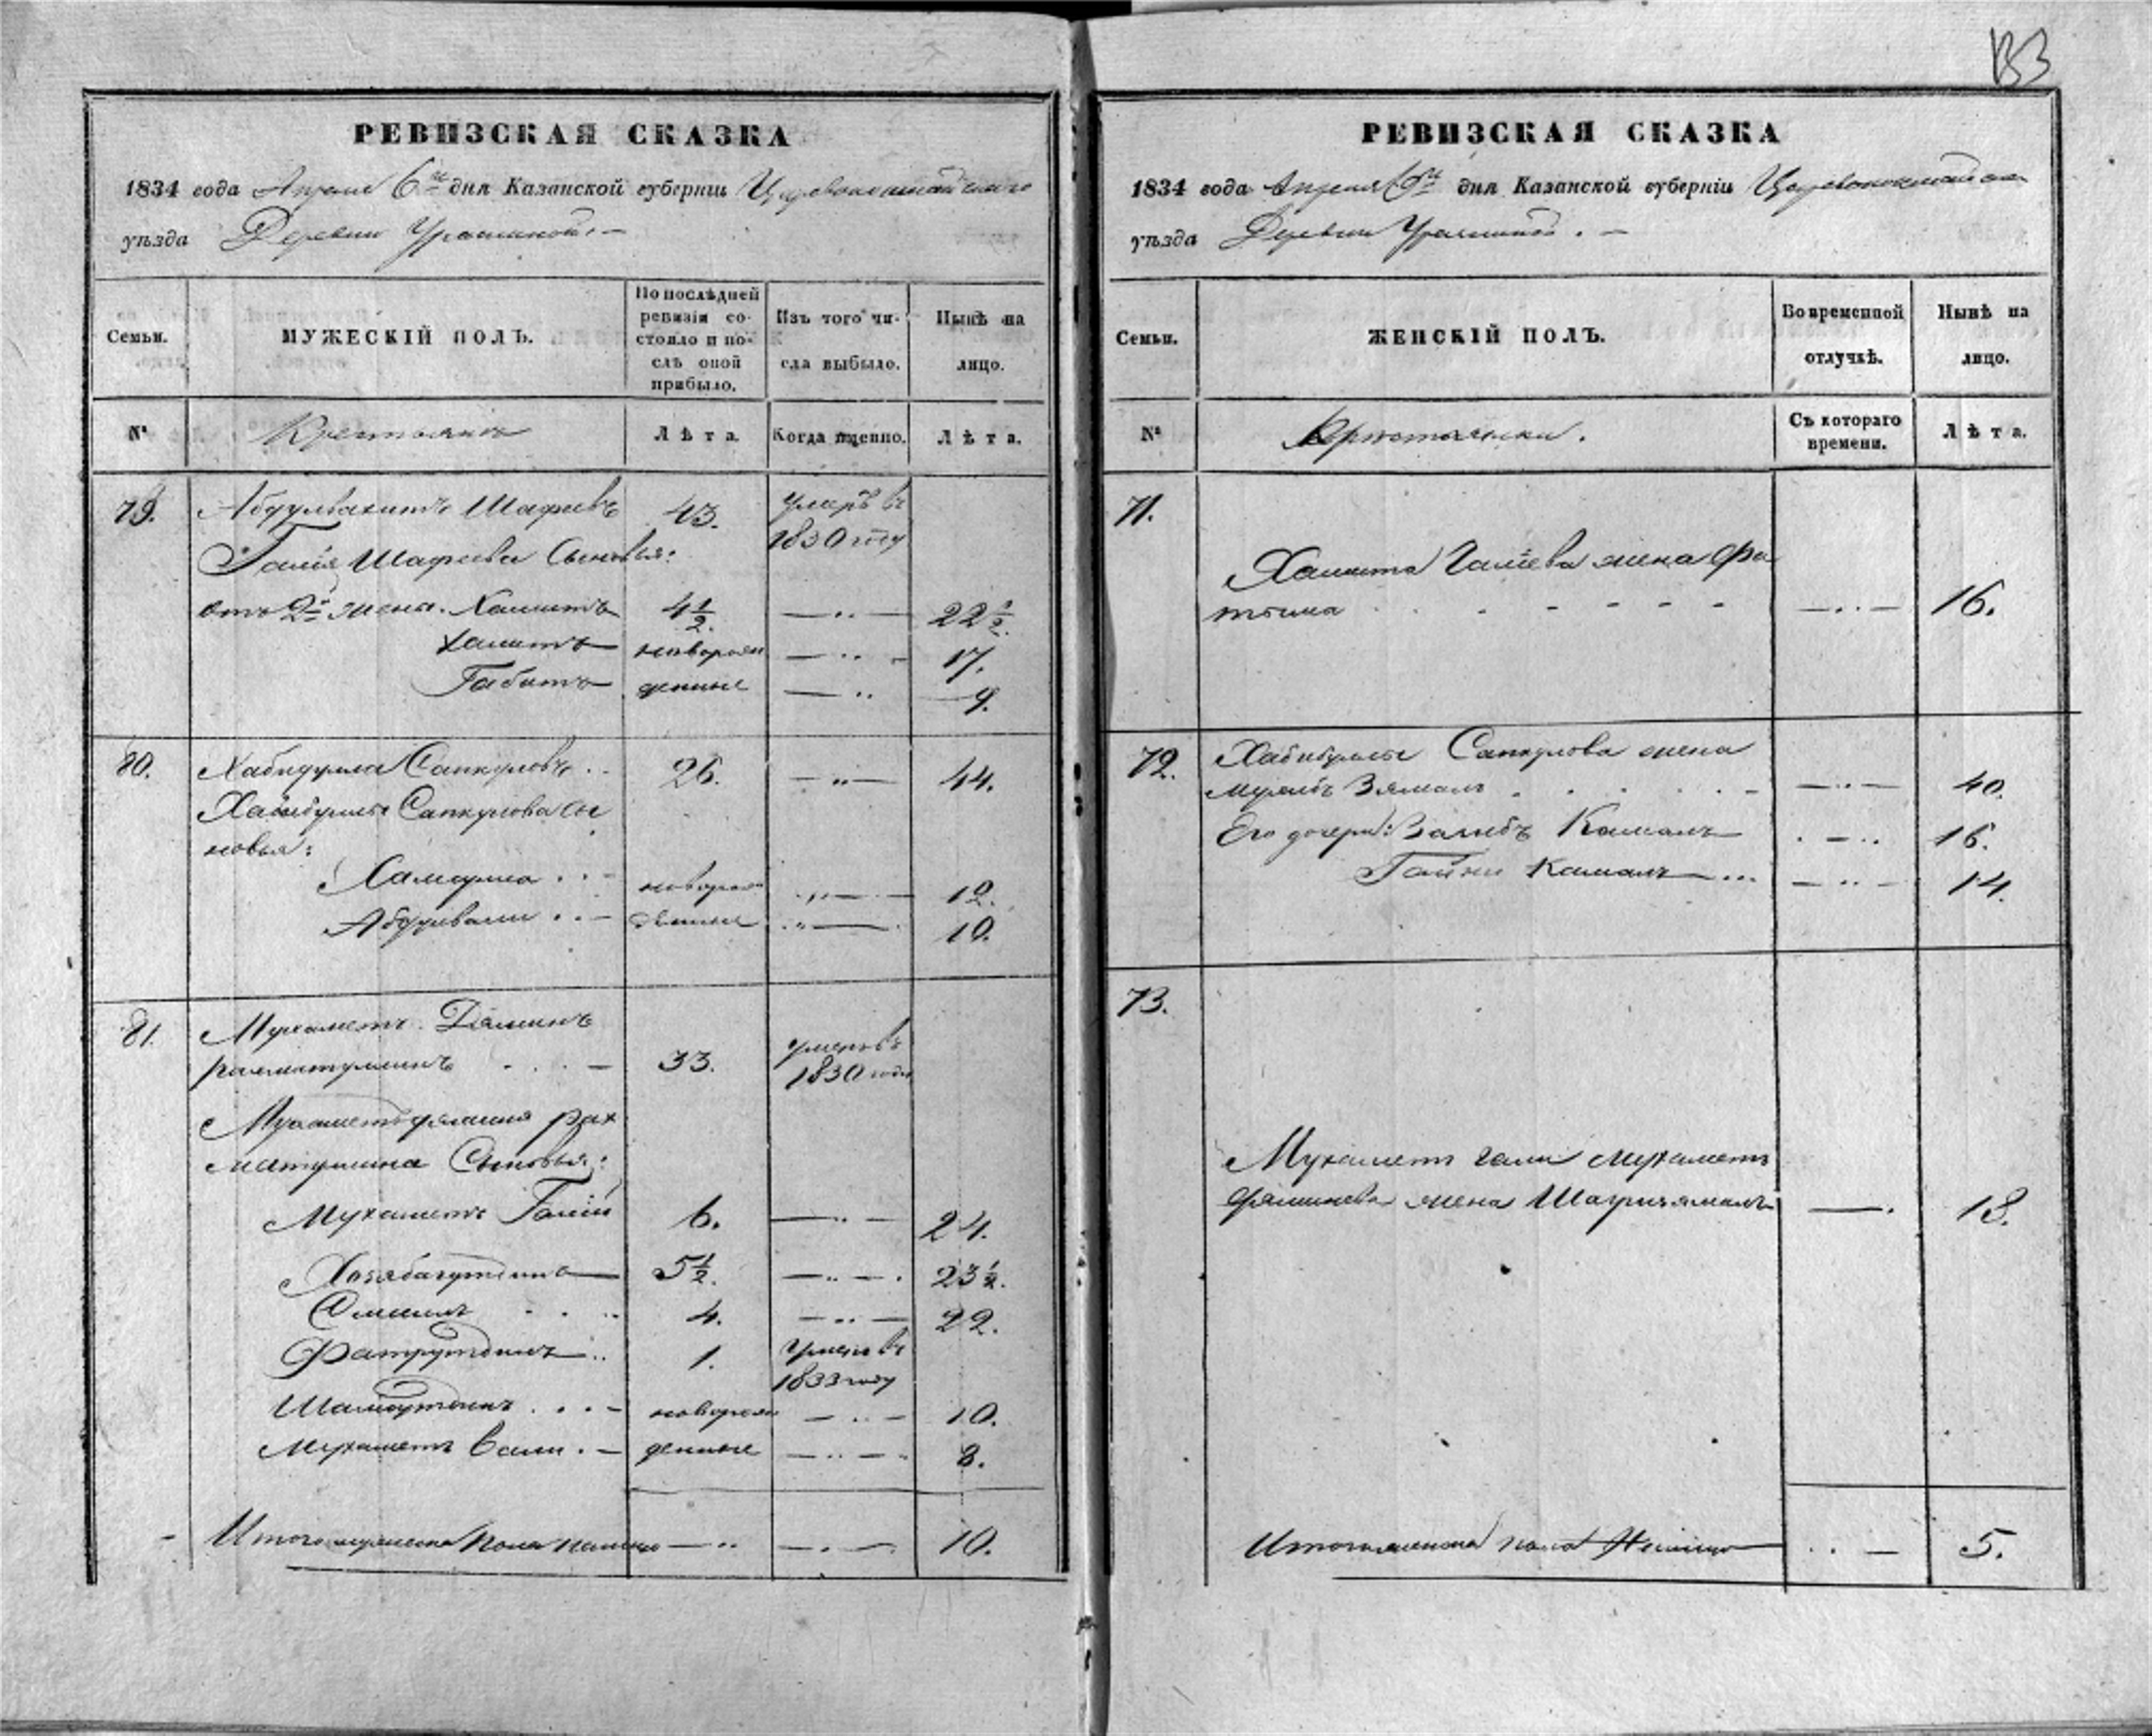 133
РЕВИЗСКАЯ СКАЗКА
1834 года Апреля 6го дня Казанской губерніи Царевококшайскаго
уѣзда Деревни
Семьи.
МУЖЕСКІЙ ПОЛЪ.
По послѣдней ревизіи состояло и послѣ оной прибыло.
Изъ того числа выбыло.
Нынѣ на лицо.
№
Крестьянъ
Лѣта.
Когда именно.
Лѣта.
79. Абдулвахитъ Шафѣевъ 43. умеръ въ
1830 году
Галія Шафѣева Сыновья:
отъ 2й жены. Хамитъ 4 1/2. —„— 22 1/2.
новорож —„— 17.
Габитъ денные —„ 9.
80. Хабидулла Сапкуловъ 26. —„— 44.
Хабибуллы Сапкулова сы
новья:
новорож —„— 12.
Абдулвали денные „— 10.
81. Мухаметъ
рахматуллинъ 33. умеръ въ
1830 году
рах
матуллина Сыновья:
Мухаметъ Галій 6. —„— 24.
5 1/2. —„— 23 1/2.
4. —„— 22.
1. умеръ въ
1833 году
новорож —„— 10.
Мухаметъ Вали денные —„— 8.
Итого мужеска пола налицо —„ —„— 10.
РЕВИЗСКАЯ СКАЗКА
1834 года Апреля 6го дня Казанской губерніи Царевококшайскаго
уѣзда Деревни
Семьи.
ЖЕНСКІЙ ПОЛЪ.
Во временной отлучкѣ.
Нынѣ на лицо.
№
Съ котораго времени.
Лѣта.
71.
Хамита Галіева жена Фа
тыма —„— 16.
72. Хабибуллы Сапкулова жена
Зямалъ —„— 40.
Его дочери: Камалъ —„ 16.
Камалъ —„— 14.
73.
Мухаметъ гали мухаметъ
жена —. 18.
Итого женска пола Налицо „— 5.